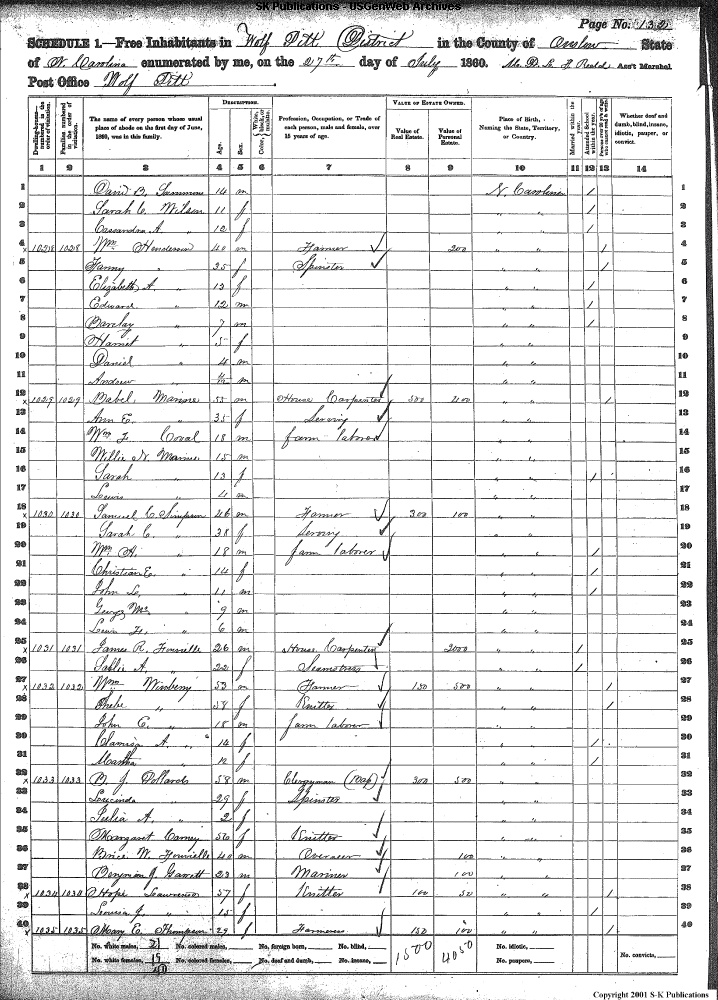 SK Publications - USGenWeb Archives
Page No. 132
SCHEDULE 1.—Free Inhabitants in Wolf Pitt District in the County of Onslow State
of N. Carolina enumerated by me, on the 27th day of July 1860. Ass't Marshal.
Post Office Wolf Pitt
Dwelling-houses—numbered in the order of visitation.
Families numbered in the order of visitation.
The name of every person whose usual place of abode on the first day of June, 1860, was in this family.
DESCRIPTION.
Age.
Sex.
Color, { White, black, or mulatto.
Profession, Occupation, or Trade of each person, male and female, over 15 years of age.
VALUE OF ESTATE OWNED.
Value of Real Estate.
Value of Personal Estate.
Place of Birth, Naming the State, Territory, or Country.
Married within the year.
Attended School within the year.
Whether deaf and dumb, blind, insane, idiotic, pauper, or convict.
1 2 3 4 5 6 7 8 9 10 11 12 13 14
1 David B. 14 m N. Carolina / 1
2 Sarah C. Wilson 11 f " " / 2
3 Cassandra A. " 12 f " " / 3
4 1028 1028 Wm Henderson 40 m Farmer 200 " " / 4
5 Fanny " 35 f Spinster " " / 5
6 Elizabeth A. " 13 f " " / 6
7 Edward " 12 m " " / 7
8 Barclay " 7 m " " / 8
9 Harriet " 5 f " " 9
10 Daniel " 4 m " " 10
11 Andrew " m " " 11
12 1029 1029 Babel Marine 55 m House Carpenter 300 400 " " / 12
13 Ann E. " 35 f Serving " " 13
14 Wm F. Coval 18 m farm laborer " " 14
15 Willie N. Marine 15 m " " 15
16 Sarah " 13 f " " / 16
17 Lewis " 4 m " " 17
18 1030 1030 Samuel C. Simpson 46 m Farmer 300 100 " " 18
19 Sarah C. " 38 f Serving " " 19
20 Wm H. " 18 m farm laborer " " / 20
21 Christian E. " 14 f " " / 21
22 John L. " 11 m " " / 22
23 George Mc " 9 m " " 23
24 Lewis H. " 6 m " " 24
25 1031 1031 James R. 26 m House Carpenter 2000 " " / 25
26 Sallie A. " 22 f Seamstress " " / 26
27 1032 1032 Wm Winberry 53 m Farmer 150 500 " " / 27
28 Phebe " 58 f Knitter " " / 28
29 John C. " 18 m farm laborer " " 29
30 A. " 14 f " " / 30
31 Martha " 12 f " " / 31
32 1033 1033 B J Pollards 58 m Clergyman (Bap) 300 500 " " 32
33 Lucinda " 29 f Spinster " " 33
34 Julia A. " 2 f " " 34
35 Margaret Carney 50 f Knitter " " 35
36 Brice W. 40 m Overseer 100 " " 36
37 Benjamin J. Garratt 23 m Mariner 100 " " 37
38 1034 1034 Hope Lawrence 57 f Knitter 100 50 " " / 38
39 Louisa J. " 15 f " " / 39
40 1035 1035 Mary E. Thompson 29 f Farmeress 150 100 " " 40
No. white males, 21 No. colored males, No. foreign born, No. blind, 1500 4050 No. idiotic, No. convicts,
No. white females, 19 No. colored females, No. deaf and dumb, No. insane, No. paupers,
Copyright 2001 S-K Publications